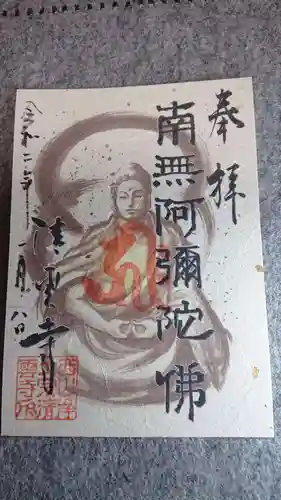 奉拝
南無阿彌陀佛
令和二年一月八日
清雲寺